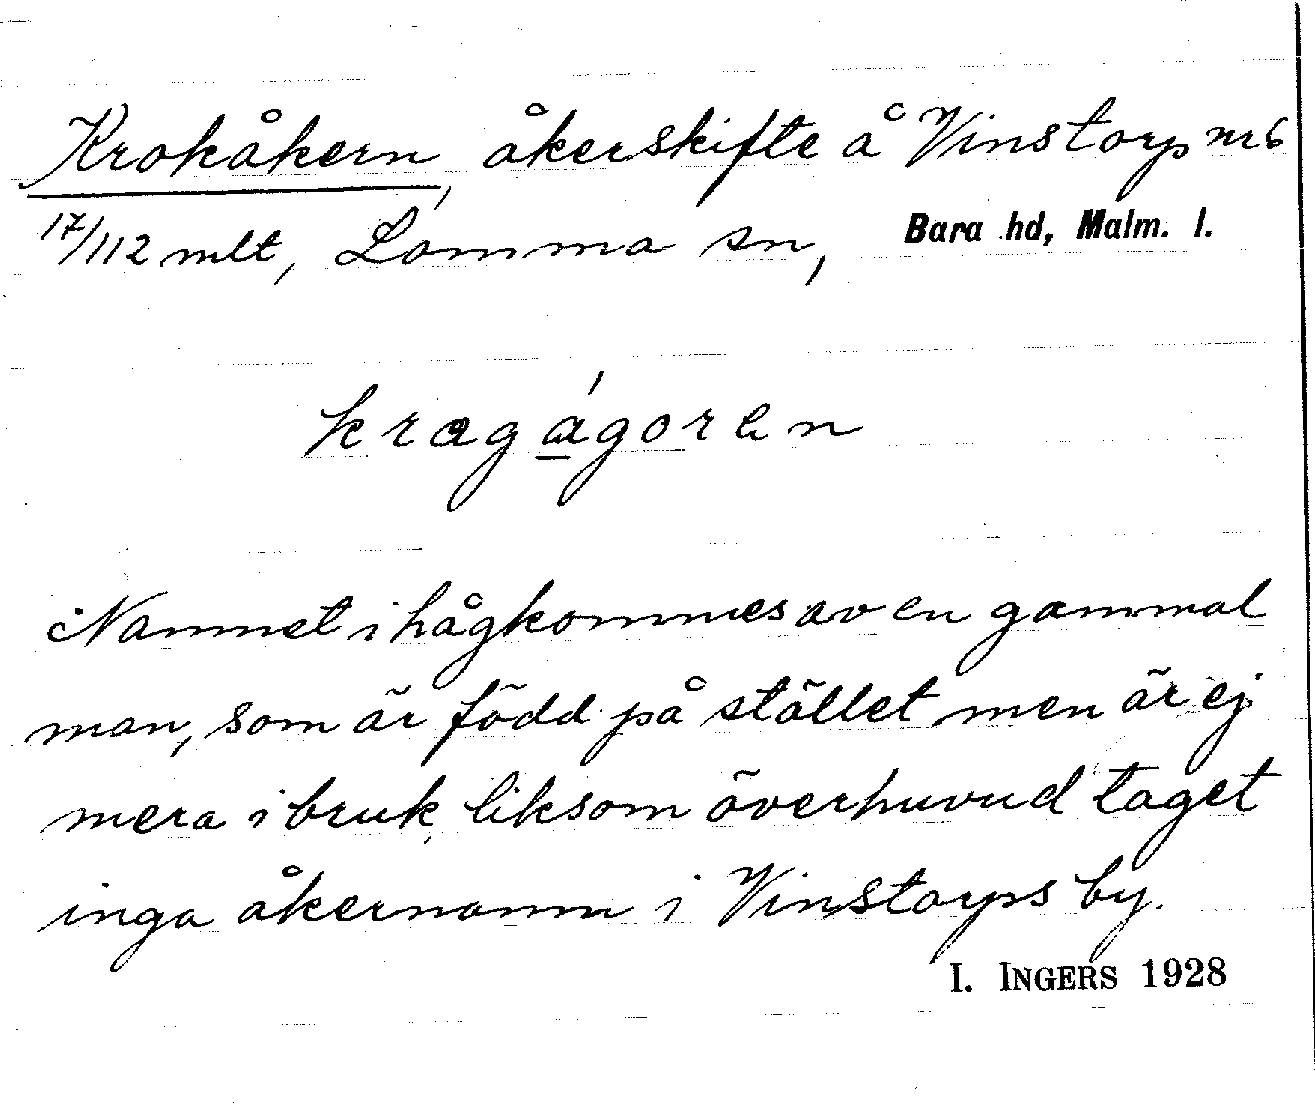 Krokåkern, åkerskifte å Vinstorp nr 6
17/112 mlt, Lomma sn, Bara hd, Malm. l.
krɑgágorən
Namnet ihågkommes av en gammal
man, som är född på stället men är ej
mera i bruk, liksom överhuvud taget
inga åkernamn i Vinstorps by.
I. INGERS 1928